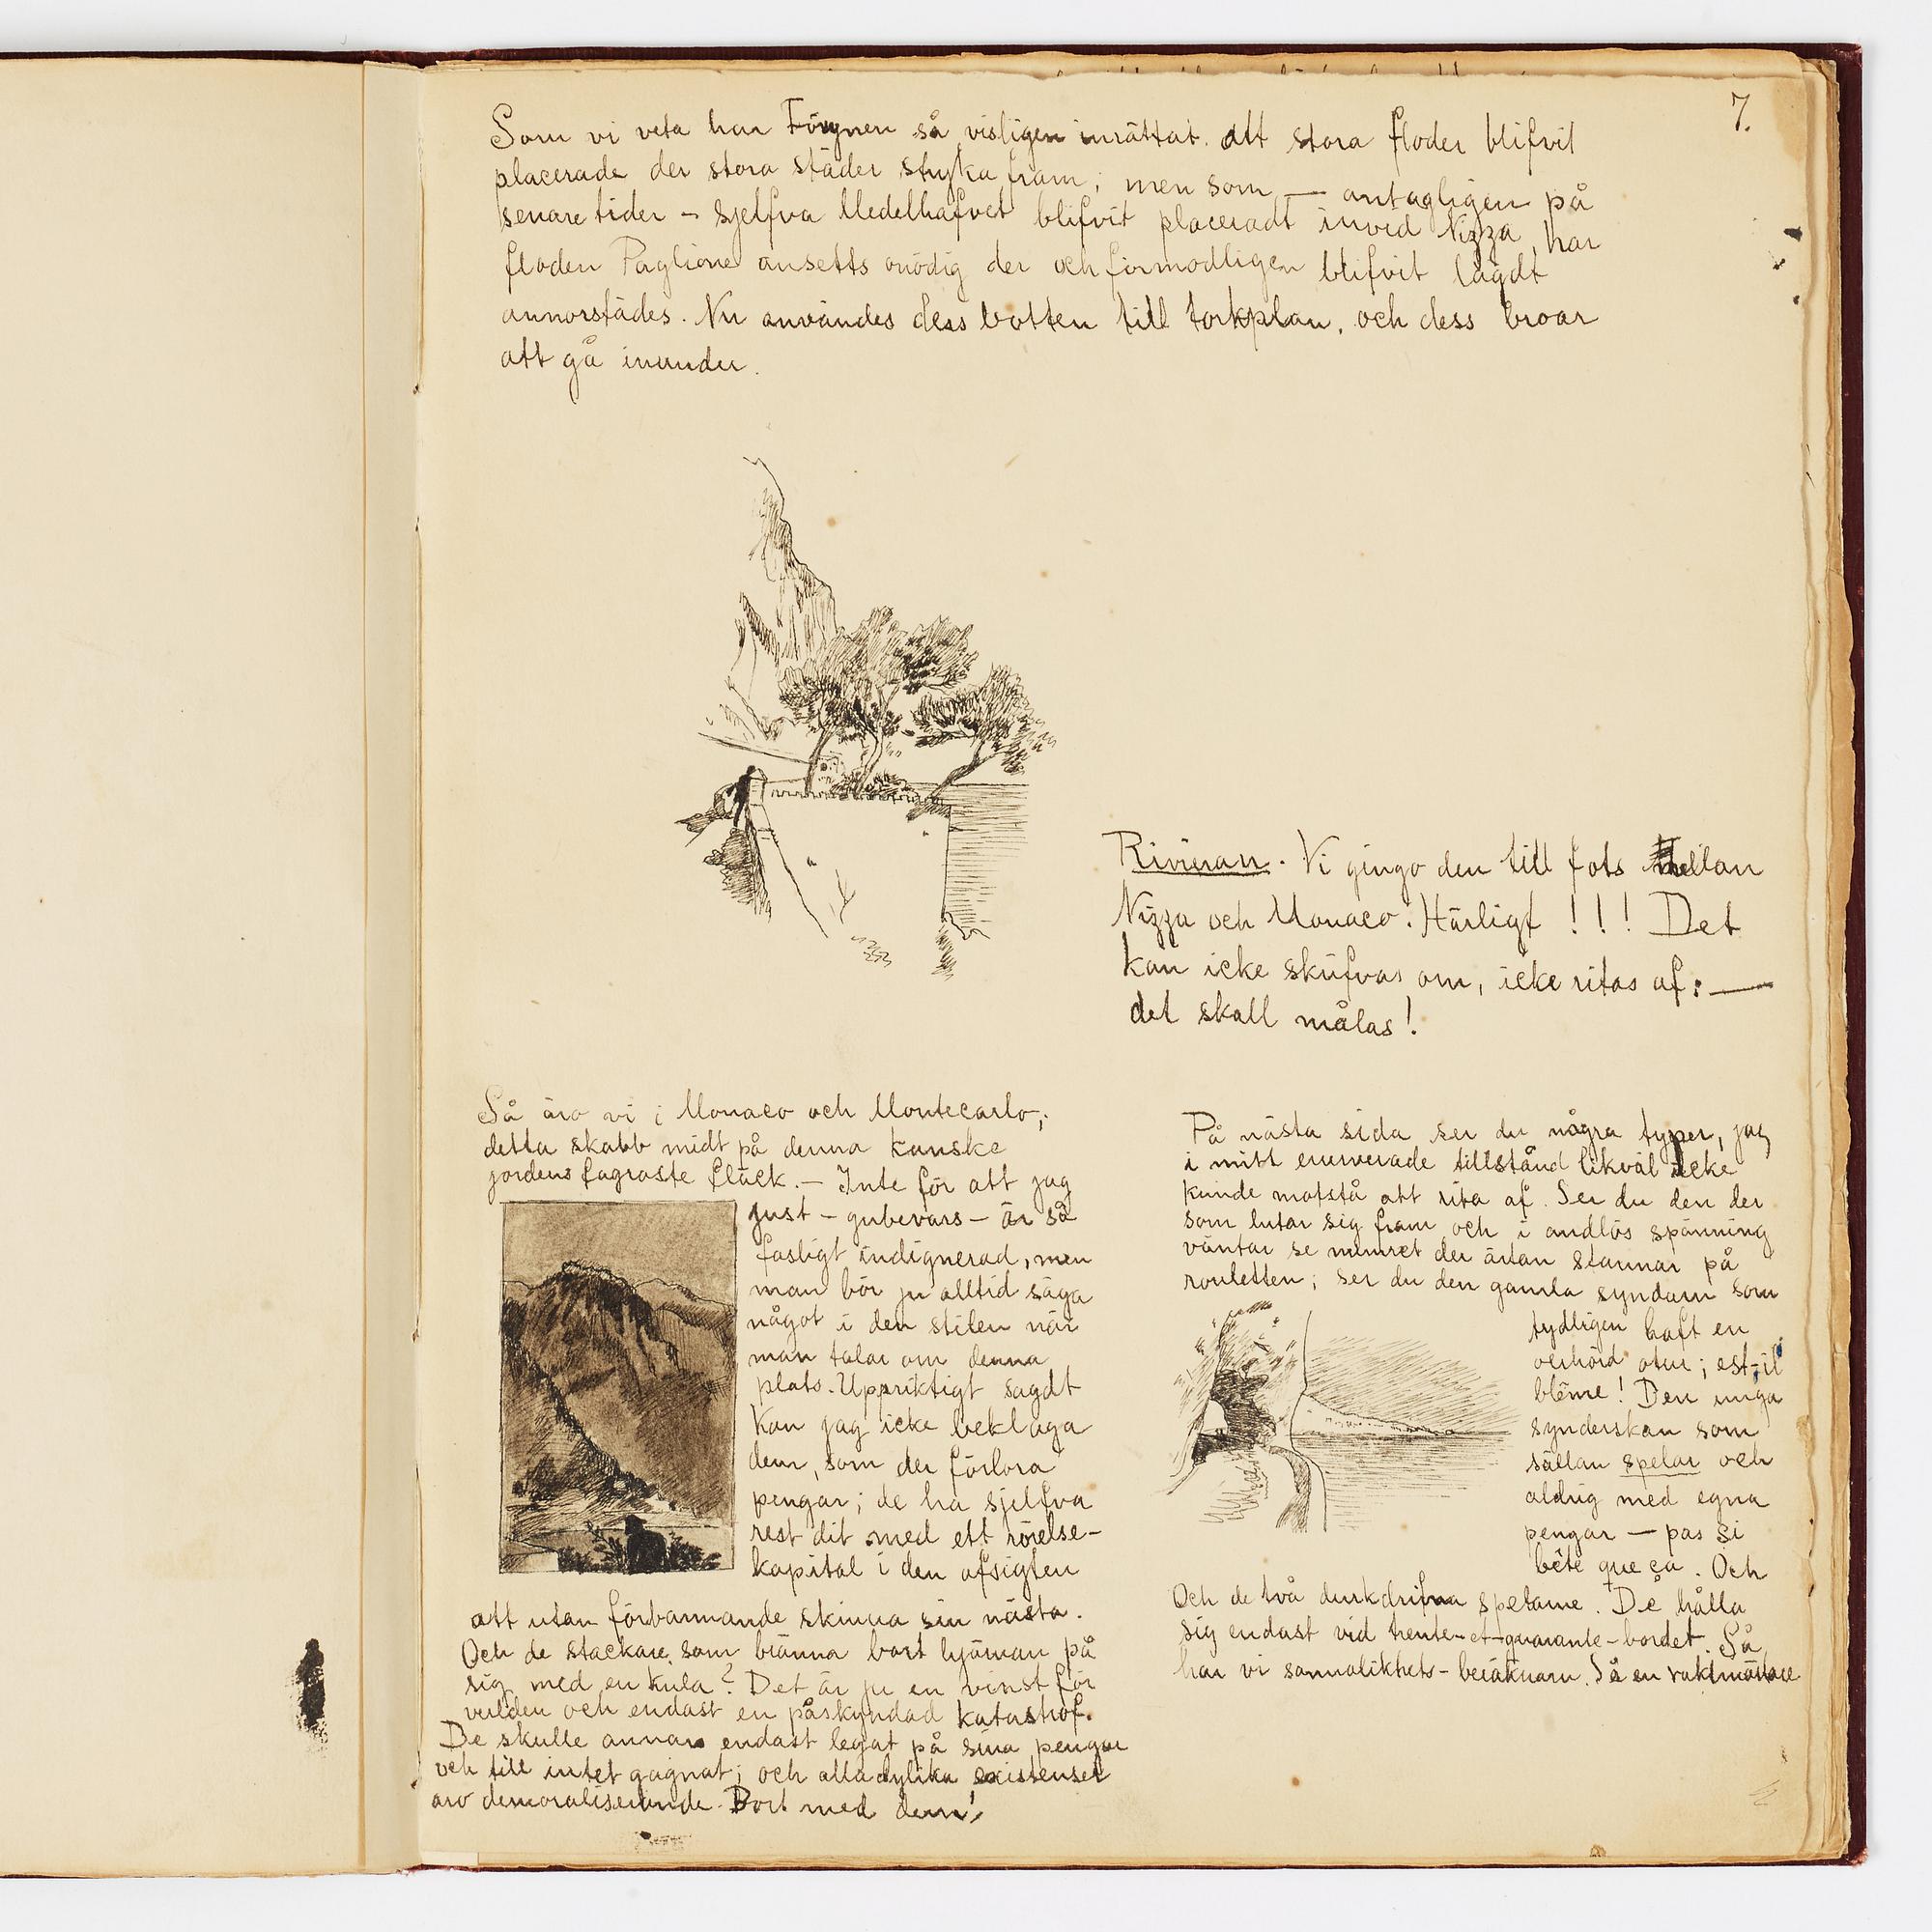 7.
Som vi veta har Försynen så visligen inrättat att stora floder blifvit
placerade der stora städer stryka fram; men som — antagligen på
senare tider – sjelfva Medelhafvet blifvit placeradt invid Nizza, har
floden Paglione ansetts onödig der och förmodligen blifvit lagdt
annorstädes. Nu användes dess botten till torkplan, och dess broar
att gå inunder.
Rivieran. Vi gingo den till fots mellan
Nizza och Monaco. Härligt !!! Det
kan icke skrifvas om, icke ritas af: —
det skall målas!
Så äro vi i Monaco och Montecarlo;
detta skabb midt på denna kanske
jordens fagraste fläck. — Inte för att jag
just – gubevars – är så
fasligt indignerad, men
man bör ju alltid säga
något i den stilen när
man talar om denna
plats. Uppriktigt sagdt
kan jag icke beklaga
dem, som der förlora
pengar; de ha sjelfva
rest dit med ett rörelse-
kapital i den afsigten
att utan förbarmande skinna sin nästa.
Och de stackare, som bränna bort hjärnan på
sig med en kula? Det är ju en vinst för
verlden och endast en påskyndad katastrof.
De skulle annars endast legat på sina pengar
och till intet gagnat; och alla dylika existenser
äro demoraliserande. Bort med dem!
På nästa sida ser du några typer, jag
i mitt enerverade tillstånd likväl icke
kunde motstå att rita af. Ser du den der
som lutar sig fram och i andlös spänning
väntar se numret der ärtan stannar på
rouletten; ser du den gamla syndarn som
tydligen haft en
oerhörd otur; est-il
blême! Den unga
synderskan som
sällan spelar och
aldrig med egna
pengar — pas si
bête que ça. Och
Och de två durkdrifna spelarne. De hålla
sig endast vid trente-et-quarante-bordet. Så
har vi sannolikhets-beräknarn. Så en vaktmästare